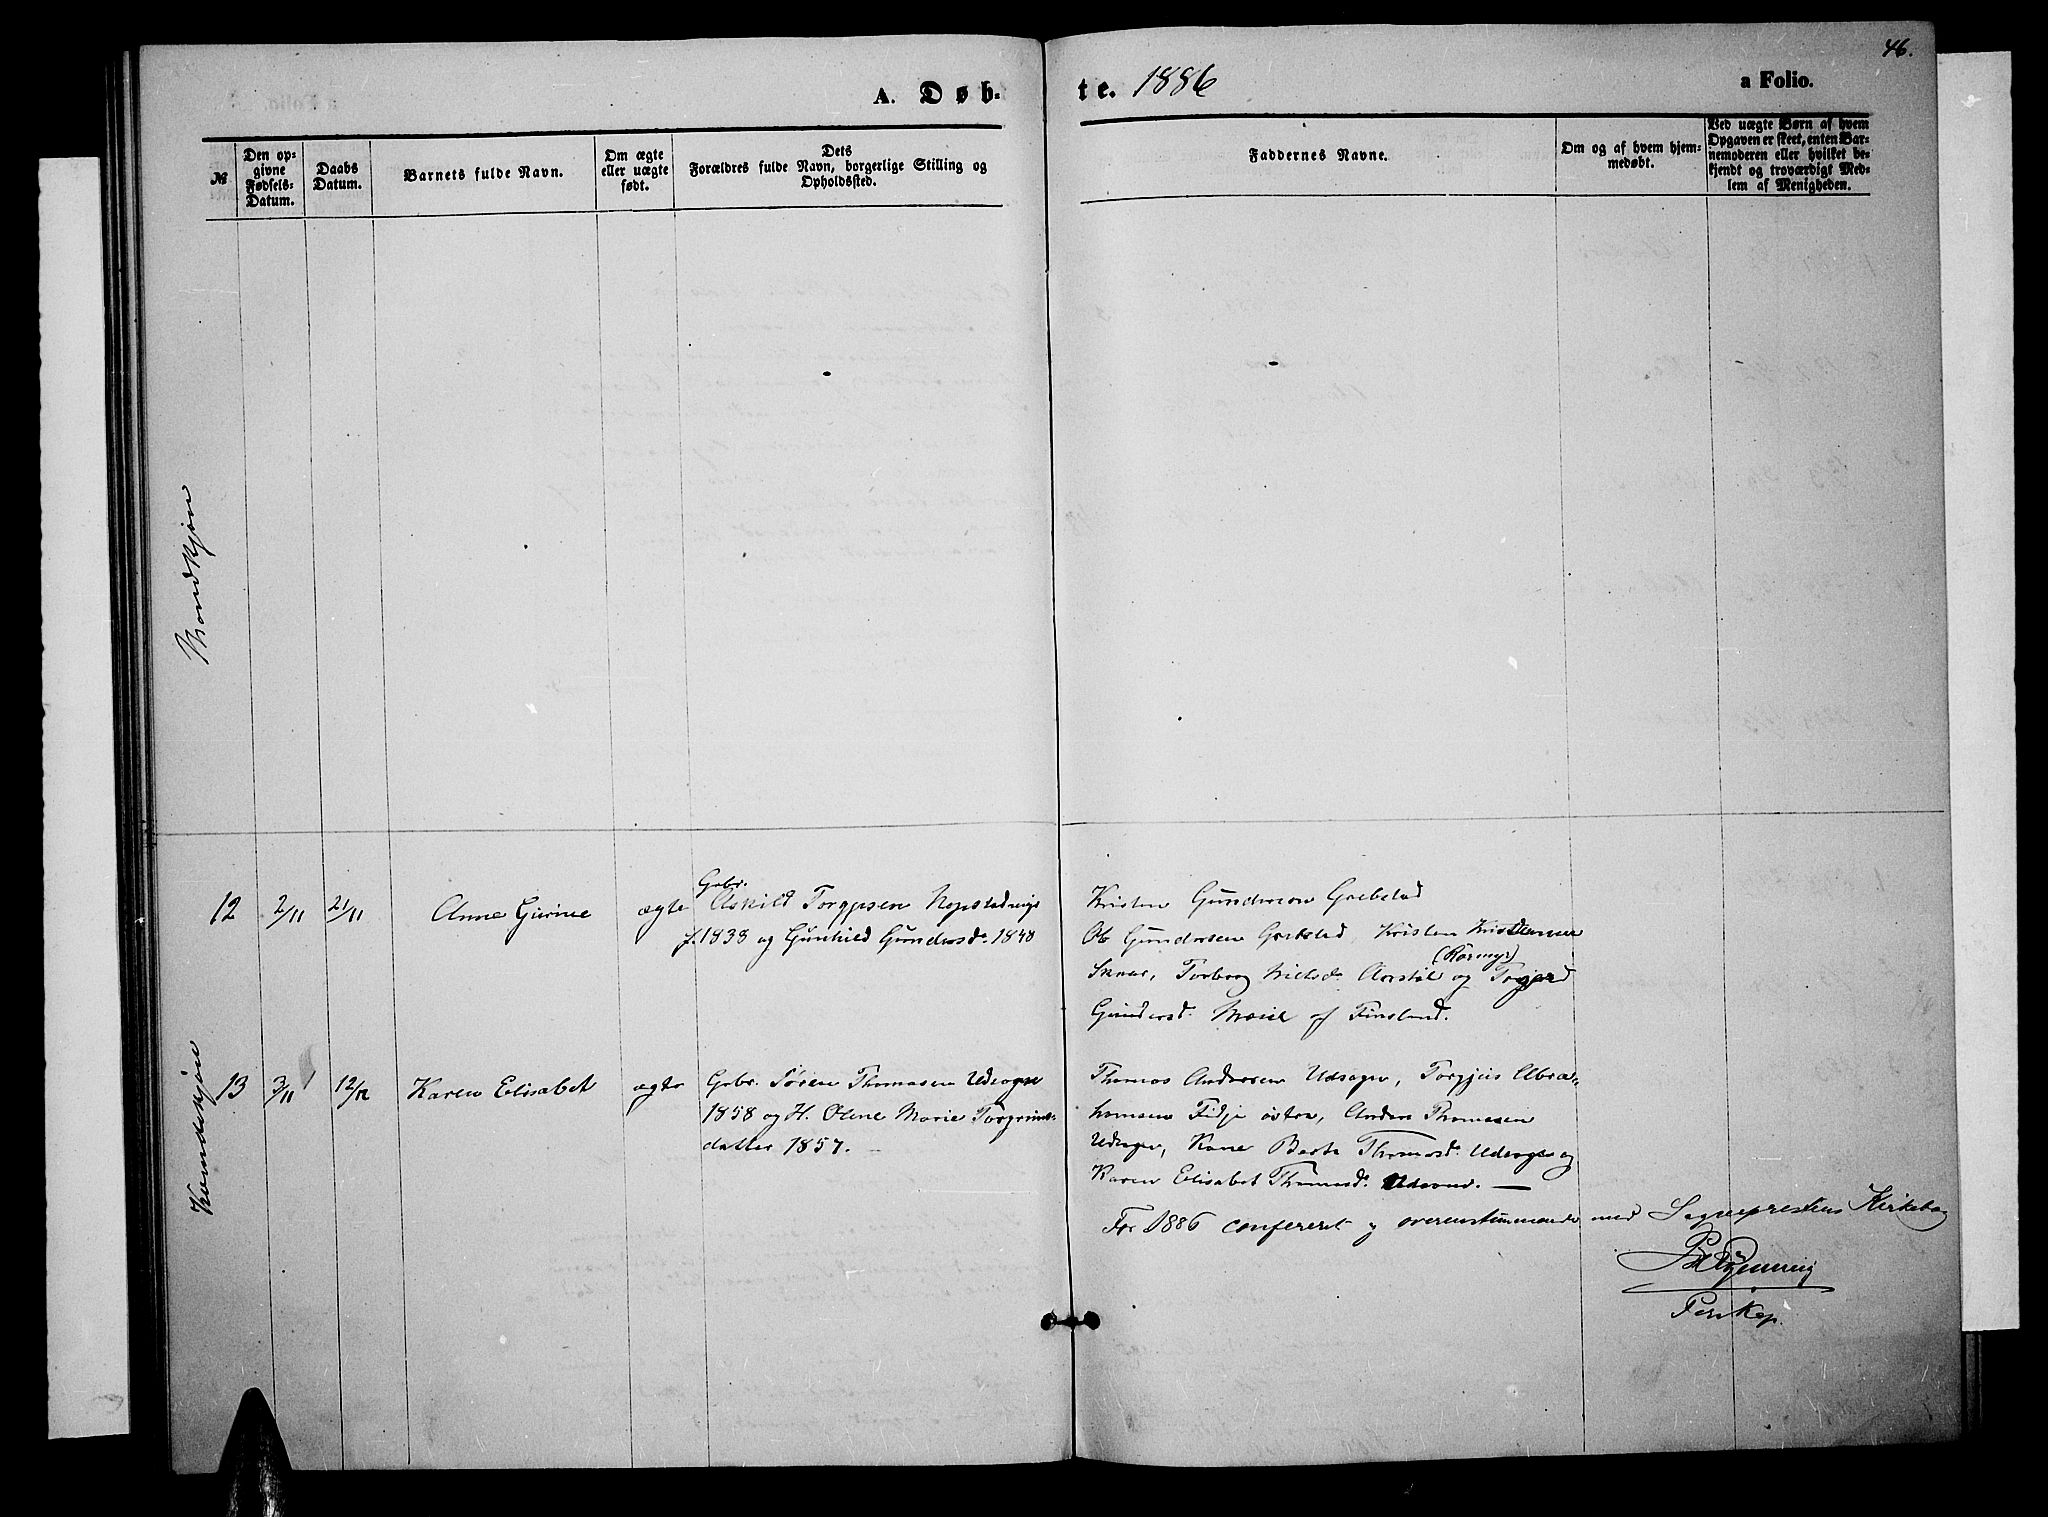 46.
A. Døb- te. 1886 a Folio.
№
Den op-
givne
Fødsels-
Datum.
Daabs
Datum.
Barnets fulde Navn.
Om ægte
eller uægte
født.
Dets
Forældres fulde Navn, borgerlige Stilling og
Opholdssted.
Faddernes Navne.
Om og af hvem hjem-
medøbt.
Ved uægte Børn af hvem
Opgaven er skeet, enten Bar-
nemoderen eller hvilket be-
kjendt og troværdigt Med-
lem af Menigheden.
Mandkjøn
Kvindekjøn
12 2/11 21/11 Anne Gurine ægte
Gbr.
Askild Torgjusen
f. 1838 og Gunhild Gundersd. 1848
Kristen Gunderson Grebstad
Ob Gundersen Grebstad, Kristen
(Rørmyr)
Torborg Nielsd. og Torgjerd
Gundersd. af Finsland.
13 3/11 12/12 Karen Elisabet ægte
Gbr. Søren Thomasen Udsogn
1858 og H. Olene Marie Torgrims-
datter 1857.
Thomas Andersen Udsogn, Torgjus Abra-
hamsen Fidje østre, Anders Thomasen
Udsogn, Kane Berte Thomasd. Udsogn og
Karen Elisabet Thomasd. Udsogn. —
For 1886 confereret og overenstemmende med Sogneprestens Kirkebog
Pers. Kap.